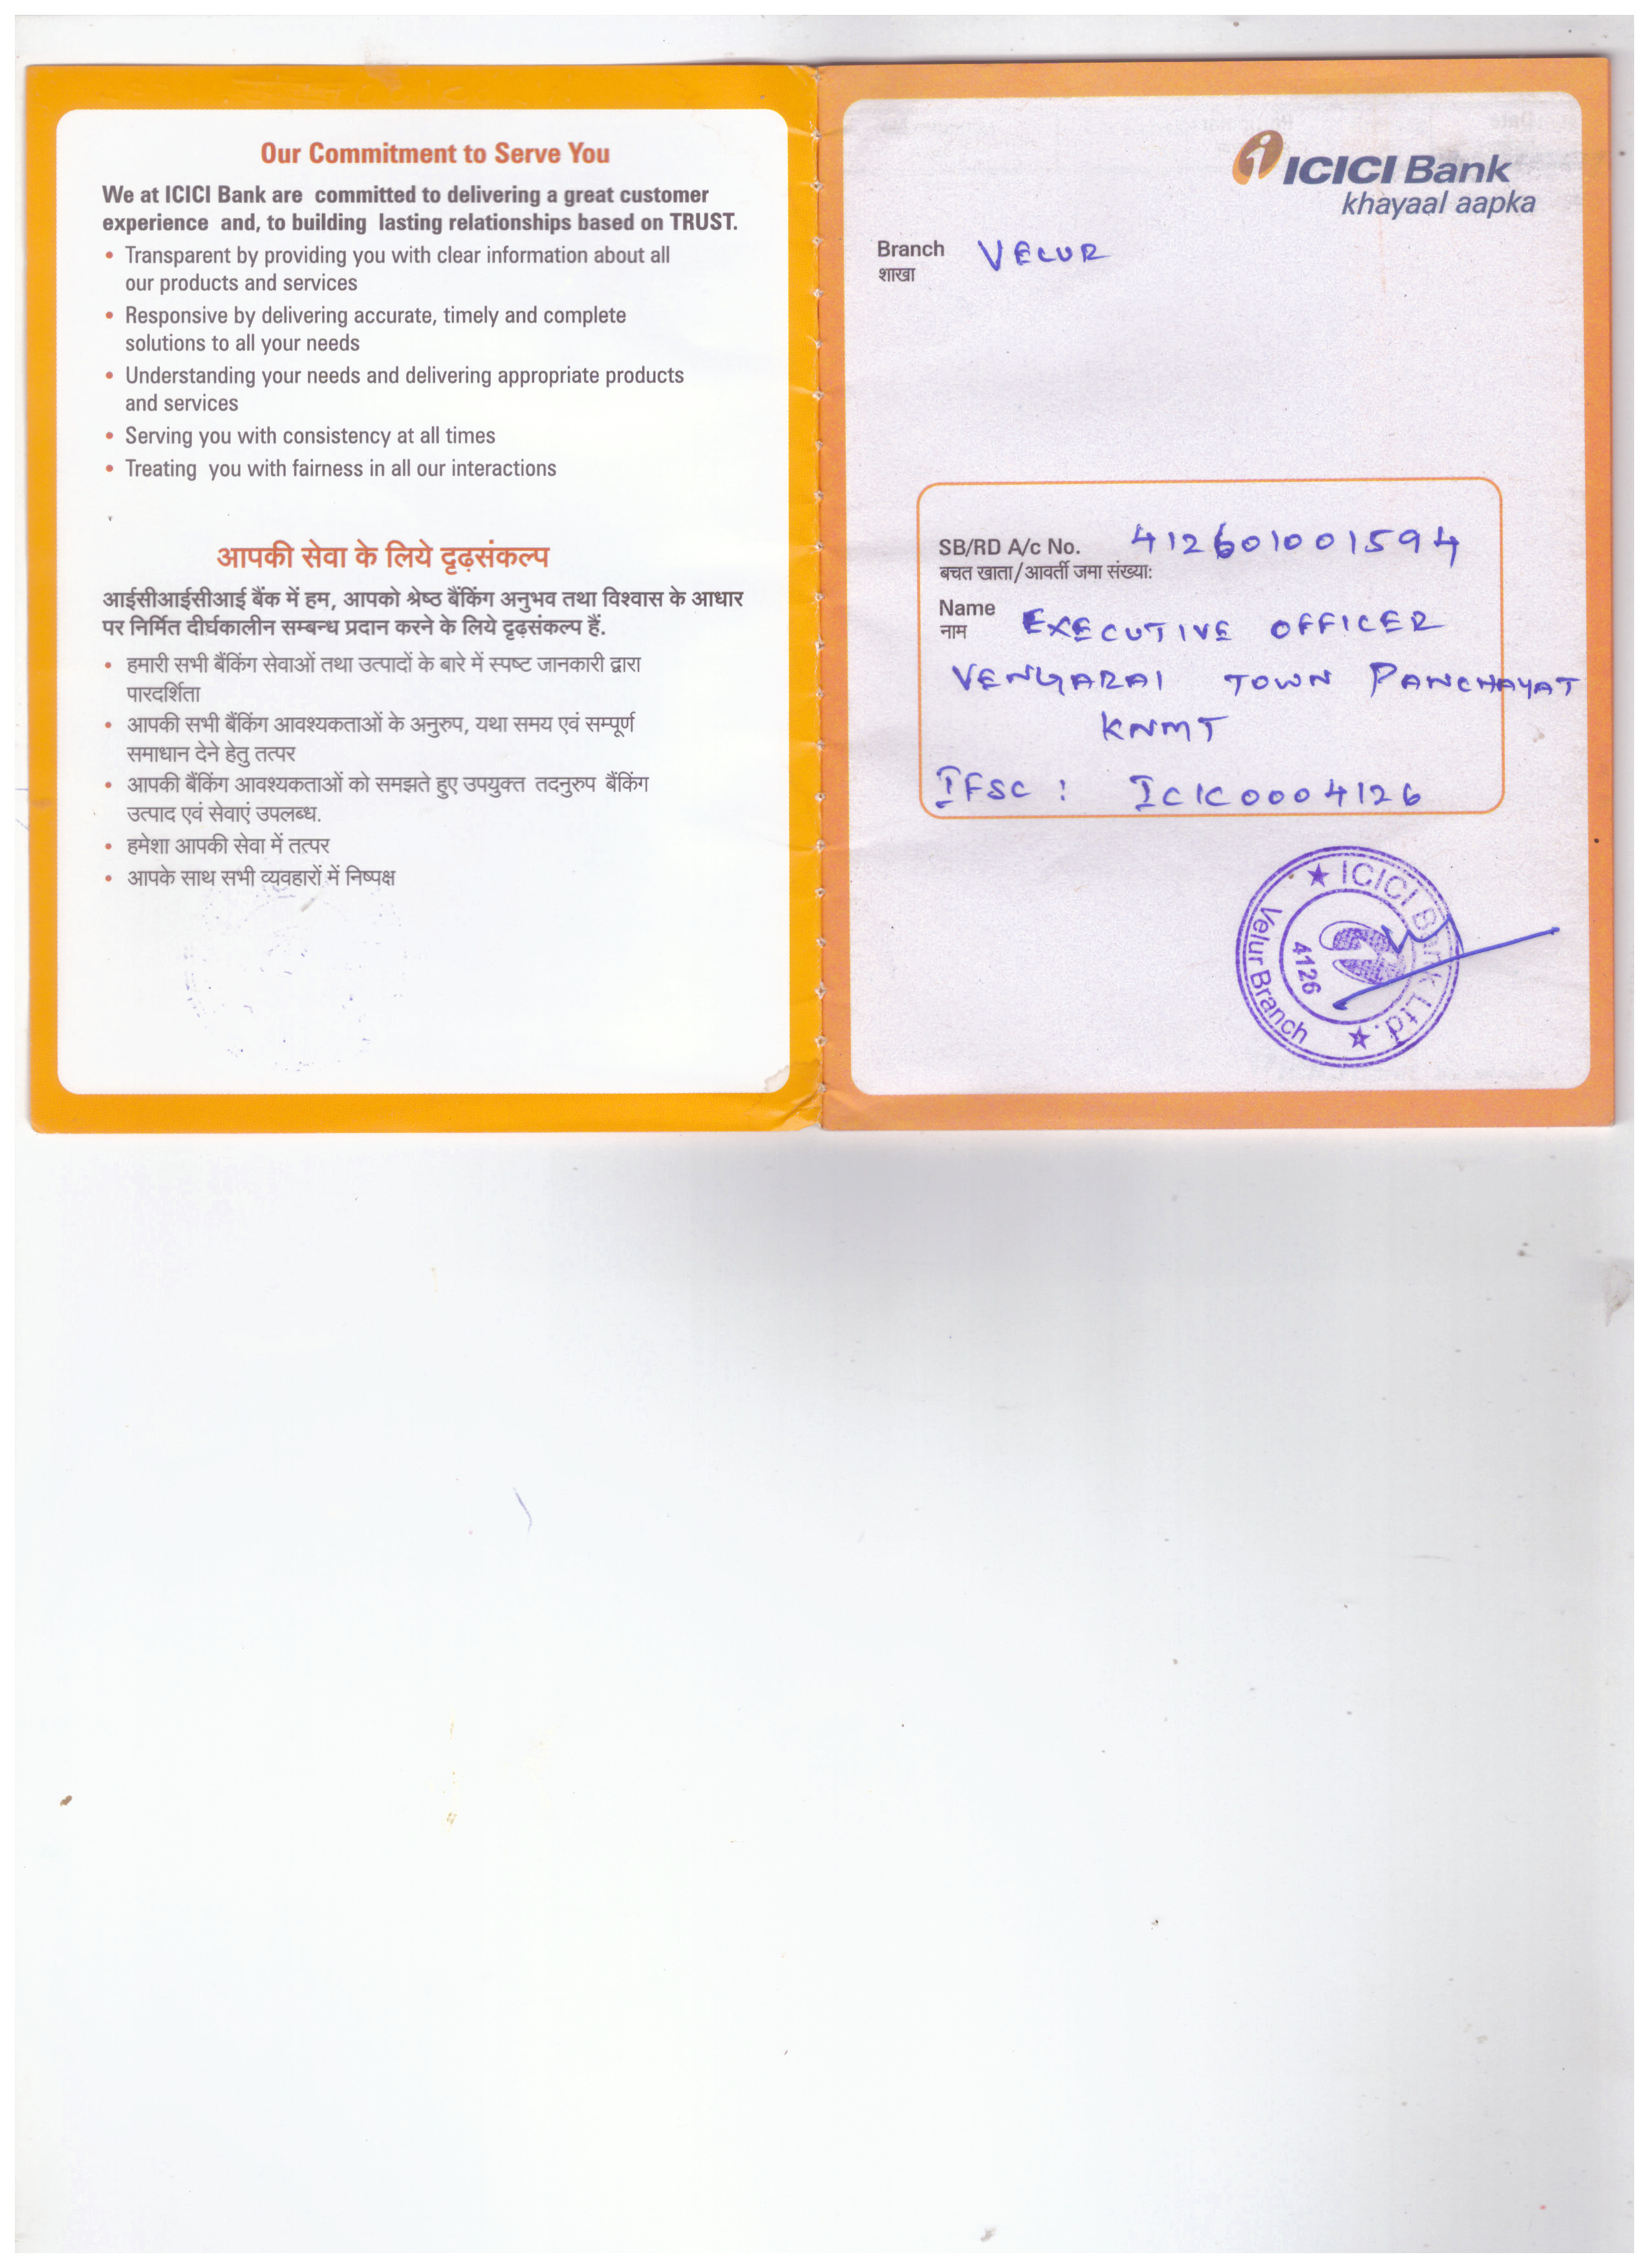 Our Commitment to Serve You
We at ICICI Bank are committed to delivering a great customer
experience and, to building lasting relationships based on TRUST.
• Transparent by providing you with clear information about all
our products and services
• Responsive by delivering accurate, timely and complete
solutions to all your needs
• Understanding your needs and delivering appropriate products
and services
• Serving you with consistency at all times
• Treating you with fairness in all our interactions
आपकी सेवा के लिये दृढ़संकल्प
आईसीआईसीआई बैंक में हम, आपको श्रेष्ठ बैंकिंग अनुभव तथा विश्वास के आधार
पर निर्मित दीर्घकालीन सम्बन्ध प्रदान करने के लिये दृढ़संकल्प हैं.
• हमारी सभी बैंकिंग सेवाओं तथा उत्पादों के बारे में स्पष्ट जानकारी द्वारा
पारदर्शिता
• आपकी सभी बैंकिंग आवश्यकताओं के अनुरुप, यथा समय एवं सम्पूर्ण
समाधान देने हेतु तत्पर
• आपकी बैंकिंग आवश्यकताओं को समझते हुए उपयुक्त तदनुरुप बैंकिंग
उत्पाद एवं सेवाएं उपलब्ध.
• हमेशा आपकी सेवा में तत्पर
• आपके साथ सभी व्यवहारों में निष्पक्ष
ICICI Bank
khayaal aapka
Branch VELUR
शाखा
SB/RD A/c No. 412601001594
बचत खाता/आवर्ती जमा संख्या:
Name EXECUTIVE OFFICER
नाम
VENGARAI TOWN PANCHAYAT
KNMT
IFSC : ICIC0004126
★ ICICI Bank Ltd. ★
Velur Branch
4126